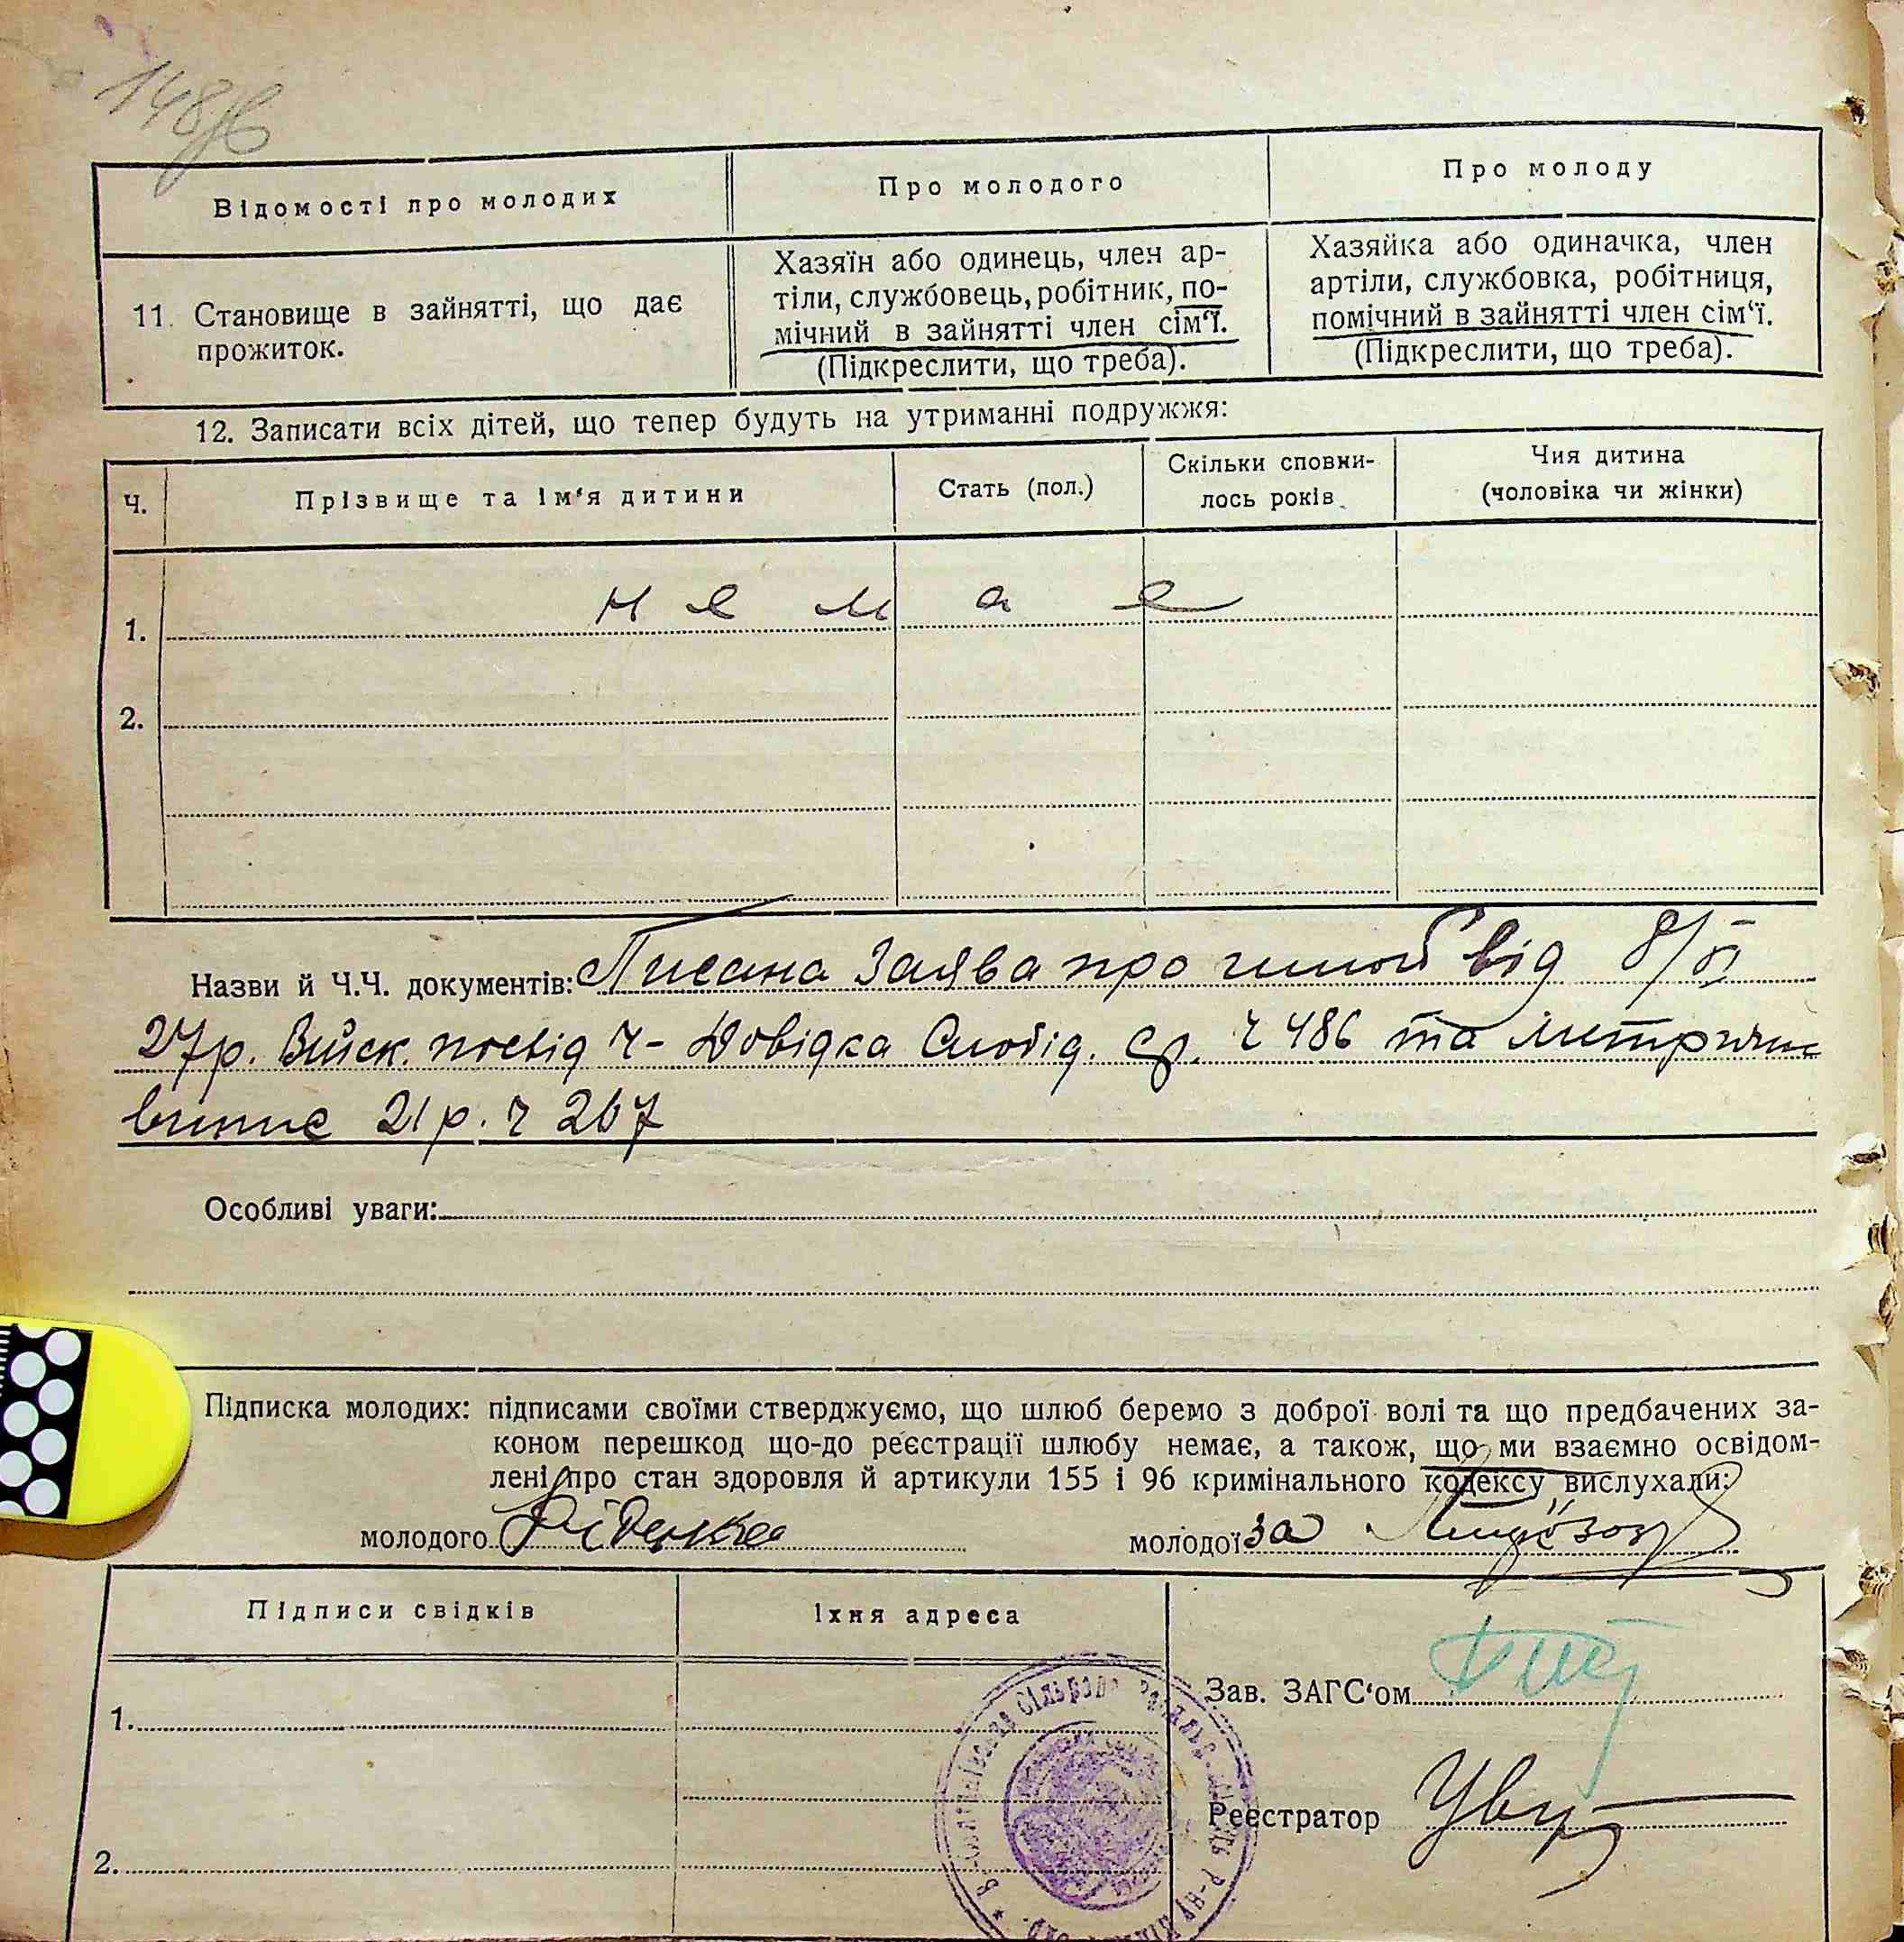 148
Відомості про молодих
Про молодого
Про молоду
11. Становище в зайнятті, що дає
прожиток.
Хазяїн або одинець, член ар-
тіли, службовець, робітник, по-
мічний в зайнятті член сім'ї.
(Підкреслити, що треба).
Хазяйка або одиначка, член
артіли, службовка, робітниця,
помічний в зайнятті член сім'ї.
(Підкреслити, що треба).
12. Записати всіх дітей, що тепер будуть на утриманні подружжя:
Ч.
Прізвище та ім'я дитини
Стать (пол.)
Скільки сповни-
лось років
Чия дитина
(чоловіка чи жінки)
1.
немає
2.
Назви й Ч.Ч. документів: Писана Заява про шлюб від 8/VI
27р. Війск. посвід Ч- Довідка Слобід. Ср. Ч 486 та метричн
випис 21р. Ч 267
Особливі уваги:
Підписка молодих: підписами своїми стверджуємо, що шлюб беремо з доброї волі та що предбачених за-
коном перешкод що-до реєстрації шлюбу немає, а також, що ми взаємно освідом-
лені про стан здоровля й артикули 155 і 96 кримінального кодексу вислухали:
молодого
молодої за
Підписи свідків
Їхня адреса
1.
2.
Зав. ЗАГС'ом
Реєстратор
сільрада